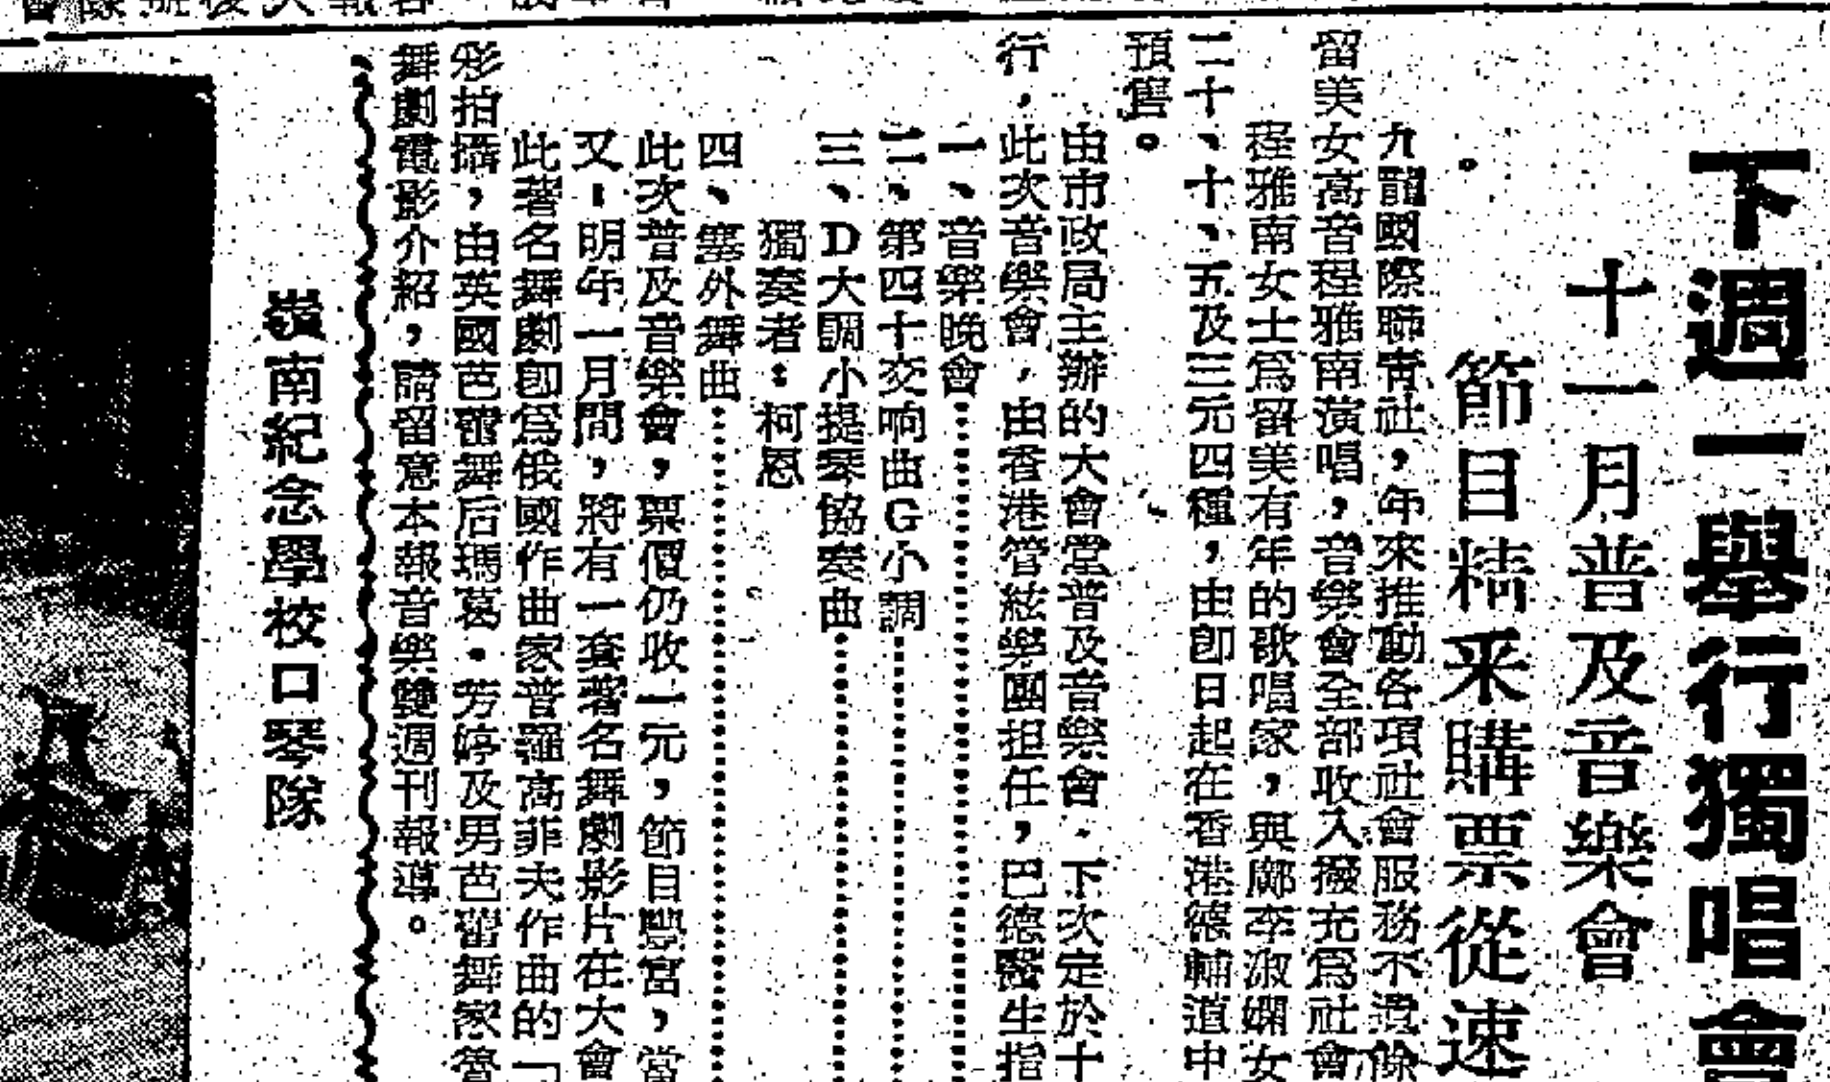 下週一舉行獨唱會
十一月普及音樂會
節目精采購票從速
九龍國際聯青社，年來推動各項社會服務不遺餘
留美女高音程雅南演唱，音樂會全部收入撥充爲社會
程雅南女士爲留美有年的歌唱家，與鄺李淑嫻女
二十、十、五及三元四種，由卽日起在香港德輔道中
預售。
由市政局主辦的大會堂普及音樂會．下次定於十
行，此次音樂會，由香港管絃樂團担任，巴德醫生指
一、音樂晚會
二、第四十交响曲G小調
三、D大調小提琴協奏曲
獨奏者：柯恩
四、塞外舞曲
此次普及音樂會，票價仍收一元，節目豐富，當
又－明年一月間，將有一套著名舞劇影片在大會
此著名舞劇卽爲俄國作曲家普羅高菲夫作曲的「
彩拍攝，由英國芭蕾舞后瑪葛．芳婷及男芭蕾舞家
舞劇電影介紹，請留意本報音樂雙週刊報導。
嶺南紀念學校口琴隊